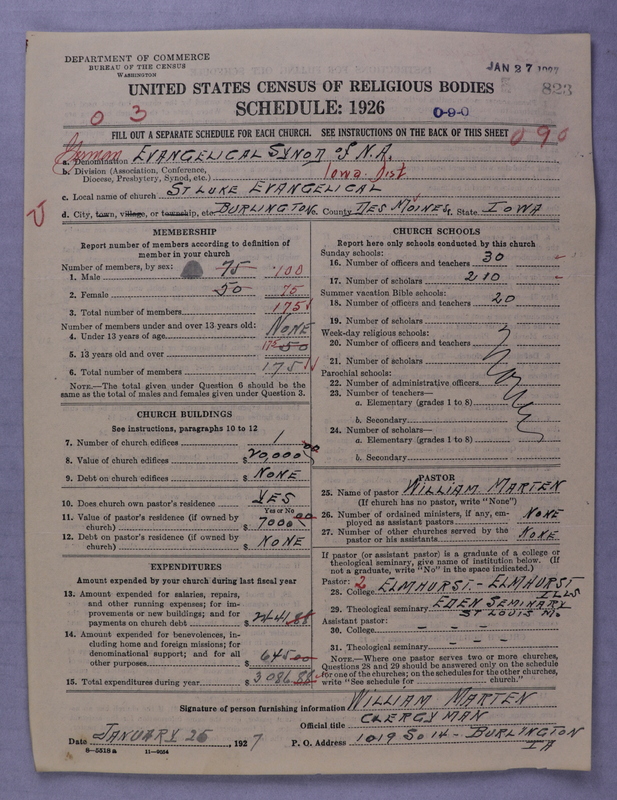 DEPARTMENT OF COMMERCE
BUREAU OF THE CENSUS
WASHINGTON
JAN 27 1927
UNITED STATES CENSUS OF RELIGIOUS BODIES
823
SCHEDULE: 1926
0 3
0-9-0
FILL OUT A SEPARATE SCHEDULE FOR EACH CHURCH. SEE INSTRUCTIONS ON THE BACK OF THIS SHEET
090
German
a. Denomination EVANGELICAL SYNOD of N.A.
b. Division (Association, Conference, Diocese, Presbytery, Synod, etc.) Iowa Dist
c. Local name of church ST LUKE EVANGELICAL
d. City, town, village, or township, etc. BURLINGTON e. County DES MOINES f. State IOWA
MEMBERSHIP
Report number of members according to definition of
member in your church
Number of members, by sex:
1. Male 75 100
2. Female 50 75
3. Total number of members 175
Number of members under and over 13 years old:
4. Under 13 years of age NONE
5. 13 years old and over 175 50
6. Total number of members 175
NOTE.—The total given under Question 6 should be
same as the total of males and females given under Question 3.
CHURCH BUILDINGS
See instructions, paragraphs 10 to 12
7. Number of church edifices 1
8. Value of church edifices $ 20,000 00
9. Debt on church edifices $ NONE
10. Does church own pastor's residence YES
Yes or No
11. Value of pastor's residence (if owned by
church) $ 7000 00
12. Debt on pastor's residence (if owned by
church) $ NONE
EXPENDITURES
Amount expended by your church during last fiscal year
13. Amount expended for salaries, repairs,
and other running expenses; for im-
provements or new buildings; and for
payments on church debt $ 2441.88
14. Amount expended for benevolences, in-
cluding home and foreign missions; for
denominational support; and for all
other purposes $ 645.00
15. Total expenditures during year $ 3086.88
CHURCH SCHOOLS
Report here only schools conducted by this church
Sunday schools:
16. Number of officers and teachers 30
17. Number of scholars 210
Summer vacation Bible schools:
18. Number of officers and teachers 20
19. Number of scholars
Week-day religious schools:
20. Number of officers and teachers
21. Number of scholars
Parochial schools:
22. Number of administrative officers
23. Number of teachers—
a. Elementary (grades 1 to 8)
b. Secondary
24. Number of scholars—
a. Elementary (grades 1 to 8)
b. Secondary
None
PASTOR
25. Name of pastor WILLIAM MARTEN
(If church has no pastor, write "None")
26. Number of ordained ministers, if any, em-
ployed as assistant pastors NONE
27. Number of other churches served by the
pastor or his assistants NONE
If pastor (or assistant pastor) is a graduate of a college or
theological seminary, give name of institution below. (If
not a graduate, write "No" in the space indicated.)
Pastor: 2
28. College ELMHURST - ELMHURST
ILLS
29. Theological seminary EDEN SEMINARY
ST LOUIS Mo.
Assistant pastor:
30. College – – –
31. Theological seminary – – –
NOTE.—Where one pastor serves two or more churches,
Questions 28 and 29 should be answered only on the schedule
for one of the churches; on the schedules for the other churches,
write "See schedule for church."
Signature of person furnishing information WILLIAM MARTEN
Official title CLERGYMAN
Date JANUARY 26 1927 P. O. Address 1019 SO 14 - BURLINGTON
IA
8—5518a 11—9034